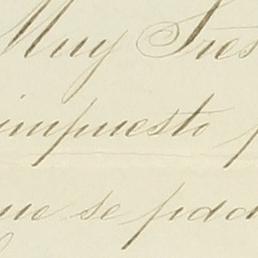 Muy Tres
impuesto p
ue se pida